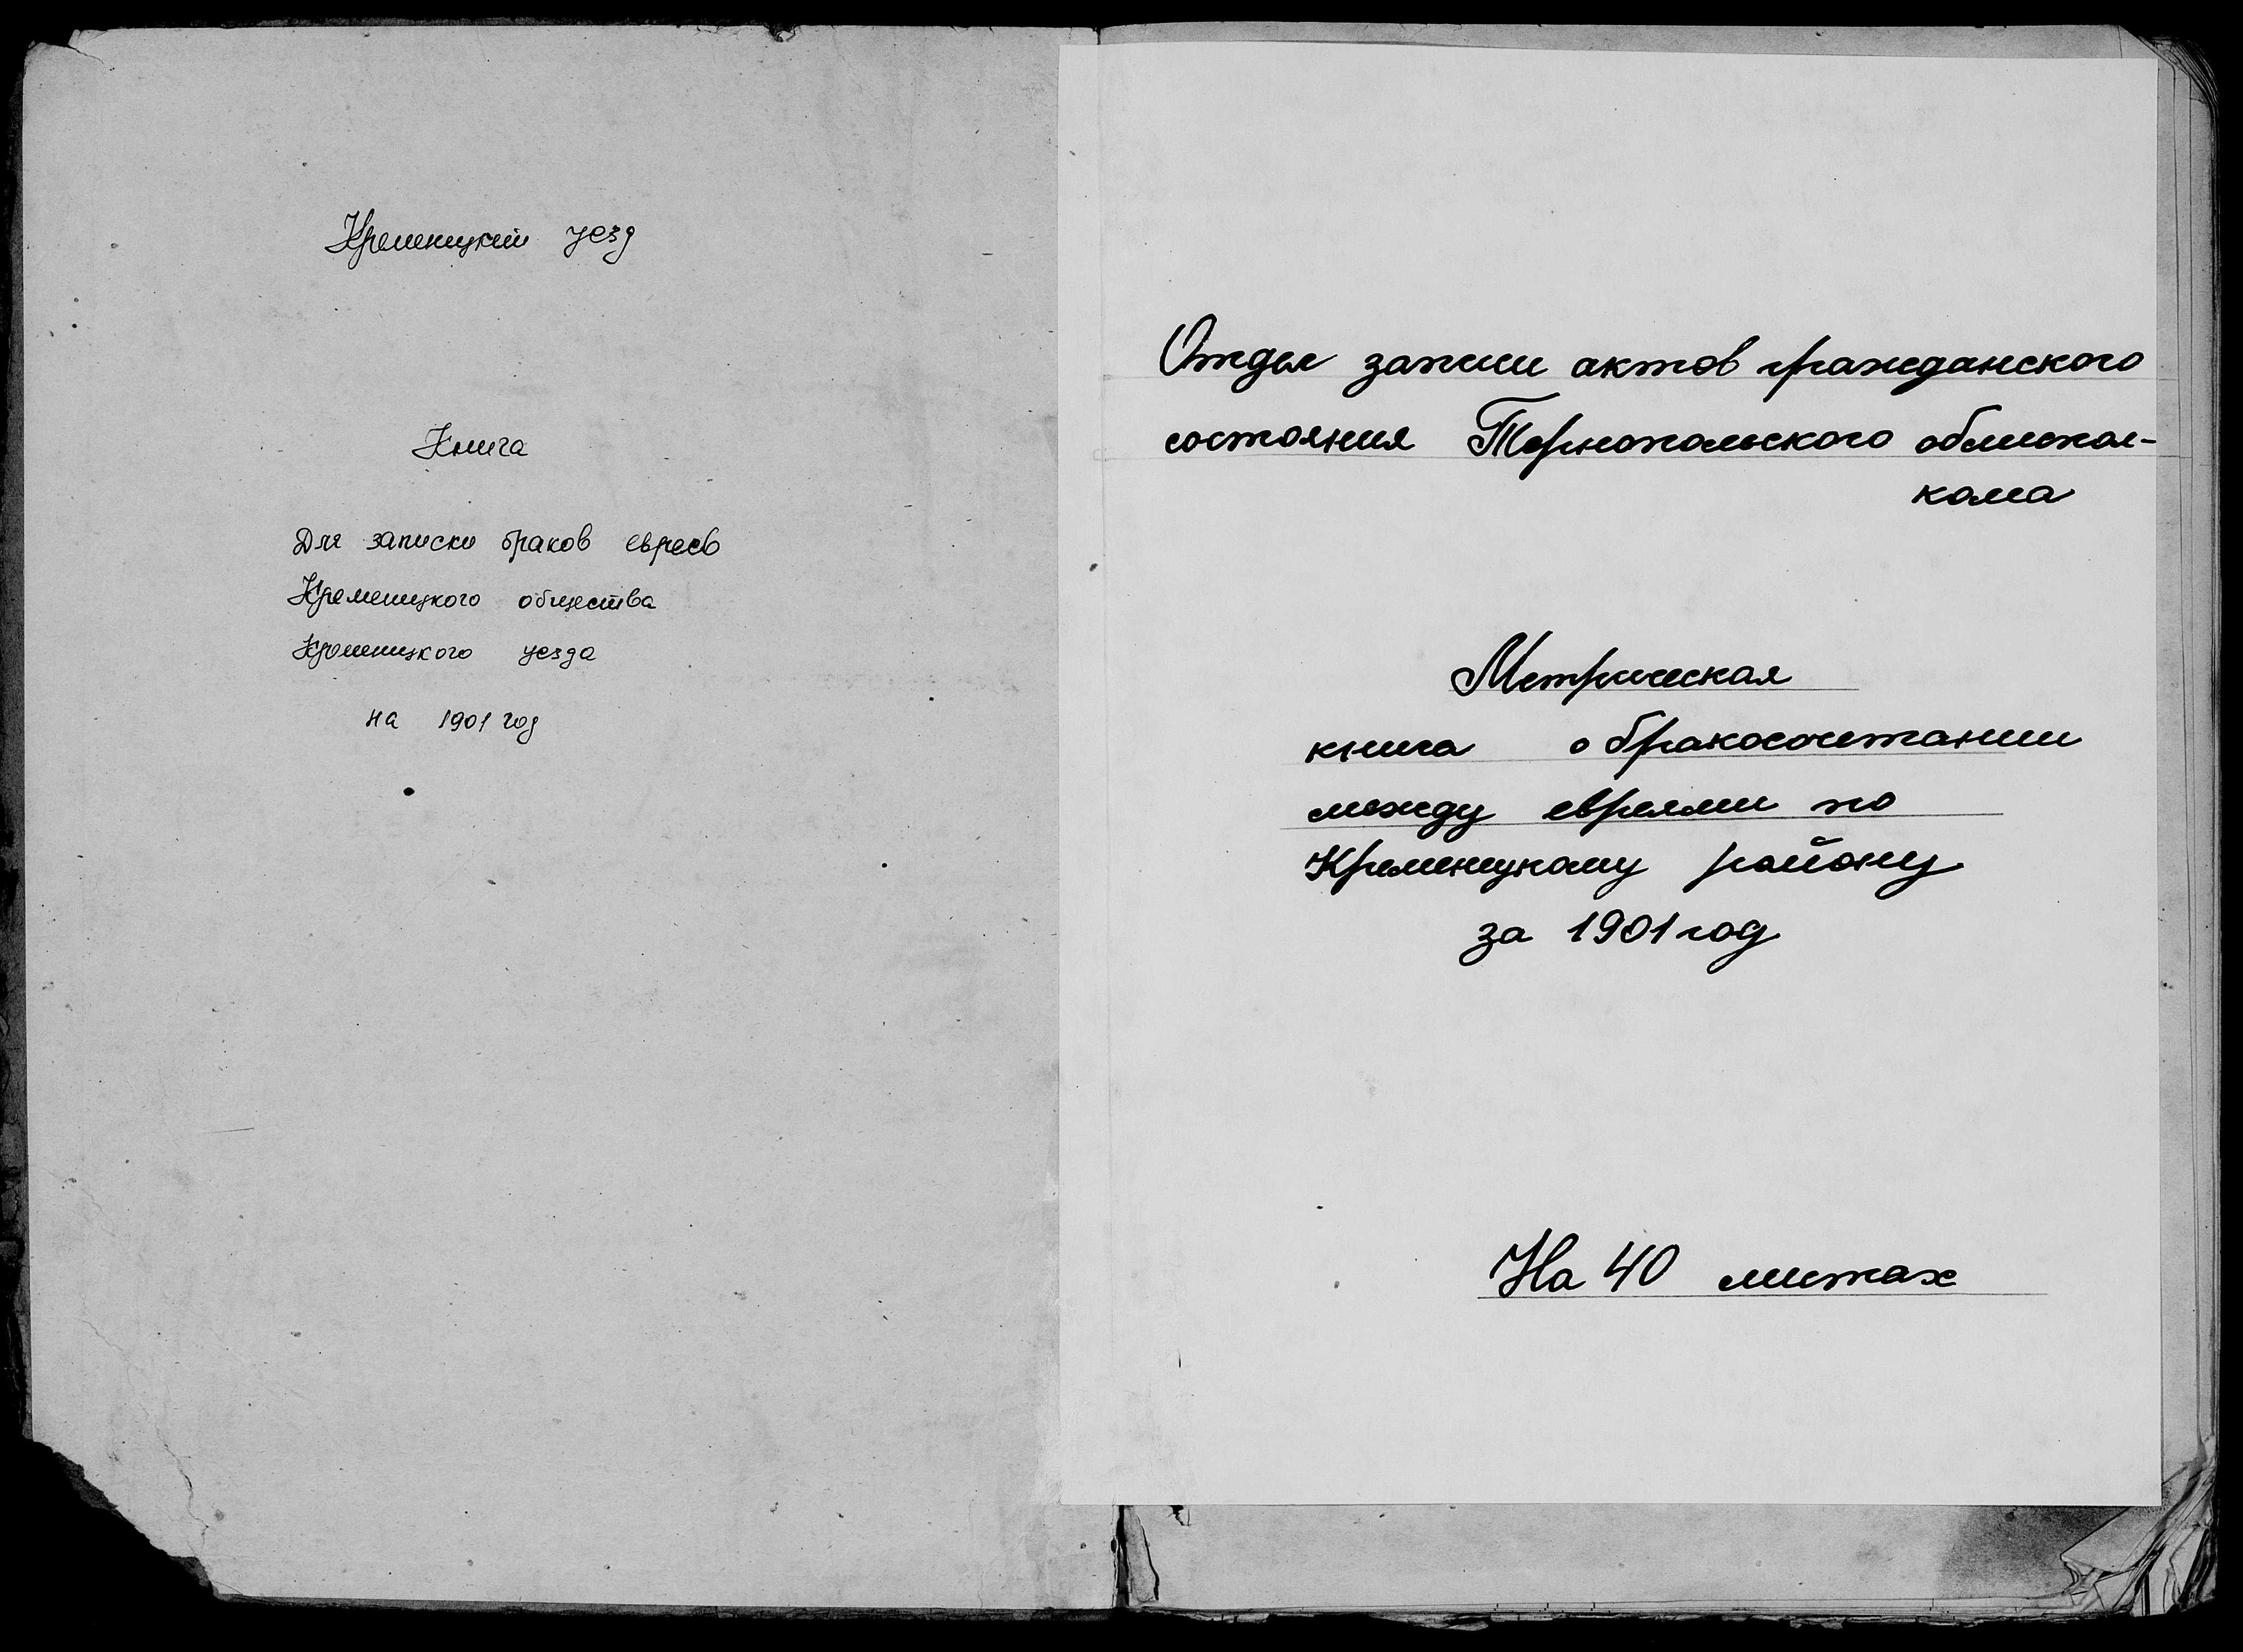 Кременецкий уезд
Книга
Для записки браков евреев
Кременецкого общества
Кременецкого уезда
на 1901 год
Отдел записи актов гражданского
состояния Тернопольского облиспол-
кома
Метрическая
книга о бракосочетании
между евреями по
Кременецкому району
за 1901 год
На 40 листах